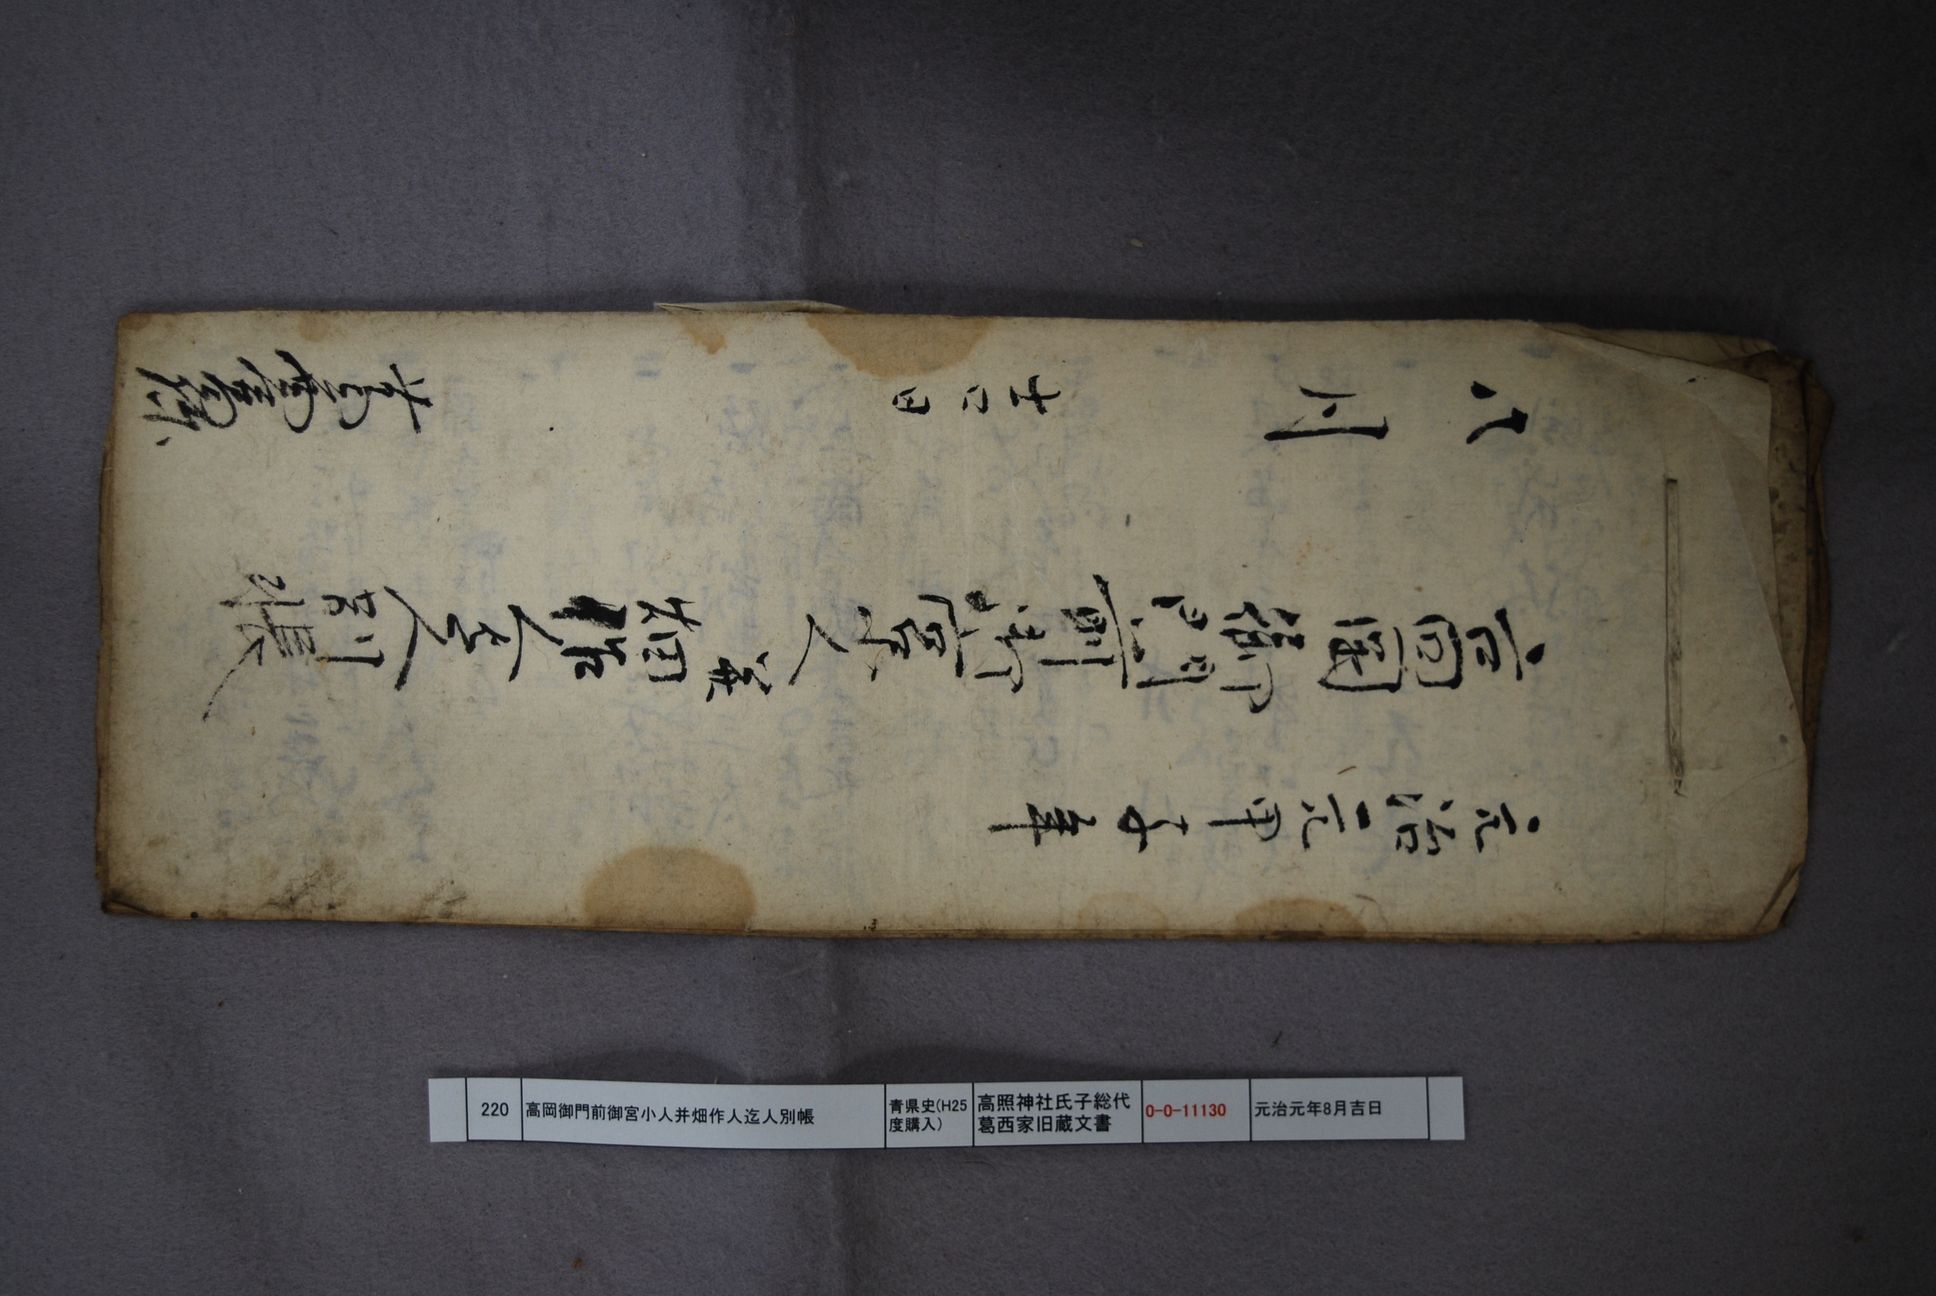 元治元甲子年
高岡御門前御宮小人并畑作人迄人別帳
八月吉日
220
高岡御門前御宮小人并畑作人迄人別帳
青県史(H25
度購入)
高照神社氏子総代
葛西家旧蔵文書
0-0-11130
元治元年8月吉日